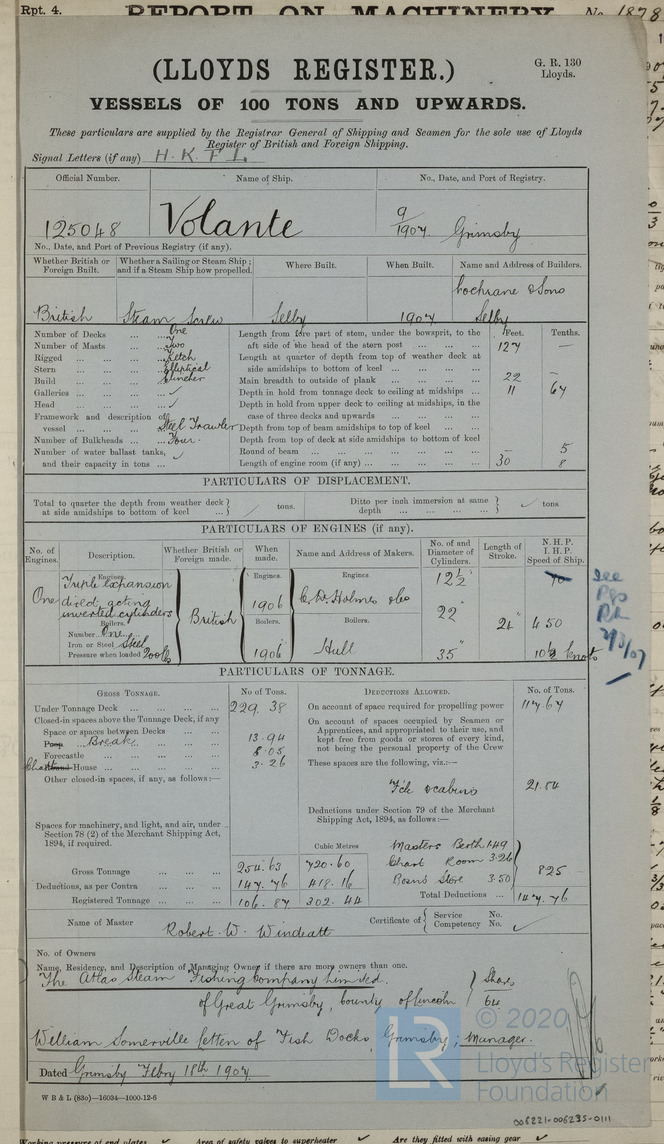 Rpt. 4. REPORT ON MACHINERY No. 1878
(LLOYDS REGISTER.)
G. R. 130
Lloyds.
VESSELS OF 100 TONS AND UPWARDS.
These particulars are supplied by the Registrar General of Shipping and Seamen for the sole use of Lloyds
Register of British and Foreign Shipping.
Signal Letters (if any) H.K.F.L.
Official Number. Name of Ship. No., Date, and Port of Registry.
125048 Volante 9/1907 Grimsby
No., Date, and Port of Previous Registry (if any).
Whether British or Foreign Built. Whether a Sailing or Steam Ship; and if a Steam Ship how propelled. Where Built. When Built. Name and Address of Builders.
British Steam Screw Selby 1907 Cochrane & Sons Selby
Number of Decks ... ... One
Number of Masts ... ... Two
Rigged ... ... Ketch
Stern ... ... Elliptical
Build ... ... Clincher
Galleries ... ... ✓
Head ... ... ✓
Framework and description of vessel ... ... Steel Trawler
Number of Bulkheads ... Four
Number of water ballast tanks, and their capacity in tons ... ✓
Feet. Tenths.
Length from fore part of stem, under the bowsprit, to the
aft side of the head of the stern post ... ... 127 —
Length at quarter of depth from top of weather deck at
side amidships to bottom of keel ... ...
Main breadth to outside of plank ... ... 22 —
Depth in hold from tonnage deck to ceiling at midships ... 11 67
Depth in hold from upper deck to ceiling at midships, in the
case of three decks and upwards ... ...
Depth from top of beam amidships to top of keel ...
Depth from top of deck at side amidships to bottom of keel
Round of beam ... ... — 5
Length of engine room (if any) ... ... 30 8
PARTICULARS OF DISPLACEMENT.
Total to quarter the depth from weather deck at side amidships to bottom of keel ... tons.
Ditto per inch immersion at same depth ... ... tons
PARTICULARS OF ENGINES (if any).
No. of Engines. Description. Whether British or Foreign made. When made. Name and Address of Makers. No. of and Diameter of Cylinders. Length of Stroke. N.H.P. I.H.P. Speed of Ship.
One
Engines.
Triple Expansion
direct acting
inverted cylinders
Boilers.
Number One
Iron or Steel Steel
Pressure when loaded 200 lbs
British
Engines. 1906
Boilers. 1906
Engines. C. D. Holmes & Co
Boilers. Hull
12½"
22"
35"
24"
70
450
10½ knots
See
PARTICULARS OF TONNAGE.
GROSS TONNAGE. No of Tons.
Under Tonnage Deck ... ... 229.38
Closed-in spaces above the Tonnage Deck, if any
Space or spaces between Decks ...
Poop ... Break ... 13.94
Forecastle ... ... 8.05
Chart House ... ... 3.26
Other closed-in spaces, if any, as follows:—
Spaces for machinery, and light, and air, under
Section 78 (2) of the Merchant Shipping Act,
1894, if required.
Cubic Metres
Gross Tonnage ... 254.63 720.60
Deductions, as per Contra ... 147.76 418.16
Registered Tonnage ... 106.87 302.44
DEDUCTIONS ALLOWED. No. of Tons.
On account of space required for propelling power 117.67
On account of spaces occupied by Seamen or
Apprentices, and appropriated to their use, and
kept free from goods or stores of every kind,
not being the personal property of the Crew
These spaces are the following, viz.:—
F'cle & cabins 21.84
Deductions under Section 79 of the Merchant
Shipping Act, 1894, as follows:—
Masters Berth 1.49
Chart Room 3.26
Bosns Store 3.50
8.25
Total Deductions ... 147.76
Name of Master Robert W. Windeatt
Certificate of { Service No. Competency No.
No. of Owners
Name, Residence, and Description of Managing Owner if there are more owners than one.
The Atlas Steam Fishing Company Limited.
of Great Grimsby, County of Lincoln
Shares
64
William Somerville Letten of Fish Docks, Grimsby; Manager.
Dated Grimsby Febry 18th 1907
W B & L (83o)—16034—1000-12-6
© 2020
LR
Lloyd's Register
Foundation
006221-006235-0111
Working pressure of end plates Area of safety valves to superheater Are they fitted with easing gear